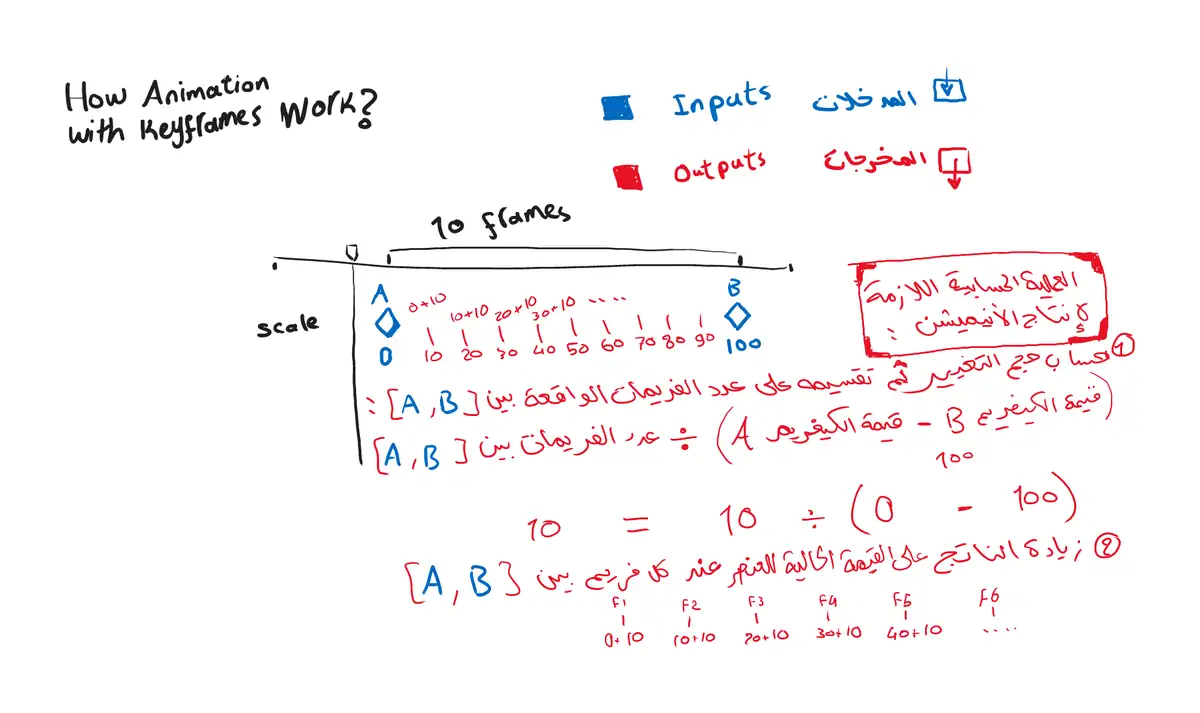 How Animation
with Keyframes Work?
Inputs المدخلات
Outputs المخرجات
10 frames
A B
0+10 10+10 20+10 30+10 ....
scale
0 10 20 30 40 50 60 70 80 90 100
العملية الحسابية اللازمة
لإنتاج الأنيميشن :
① حساب حجم التغيير ثم تقسيمه على عدد الفريمات الواقعة بين [A , B] :
(قيمة الكيفريم B - قيمة الكيفريم A) ÷ عدد الفريمات بين [A , B]
100
(100 - 0) ÷ 10 = 10
② زيادة الناتج على القيمة الحالية للعنصر عند كل فريم بين [A , B]
F1 F2 F3 F4 F5 F6
0+10 10+10 20+10 30+10 40+10 ....